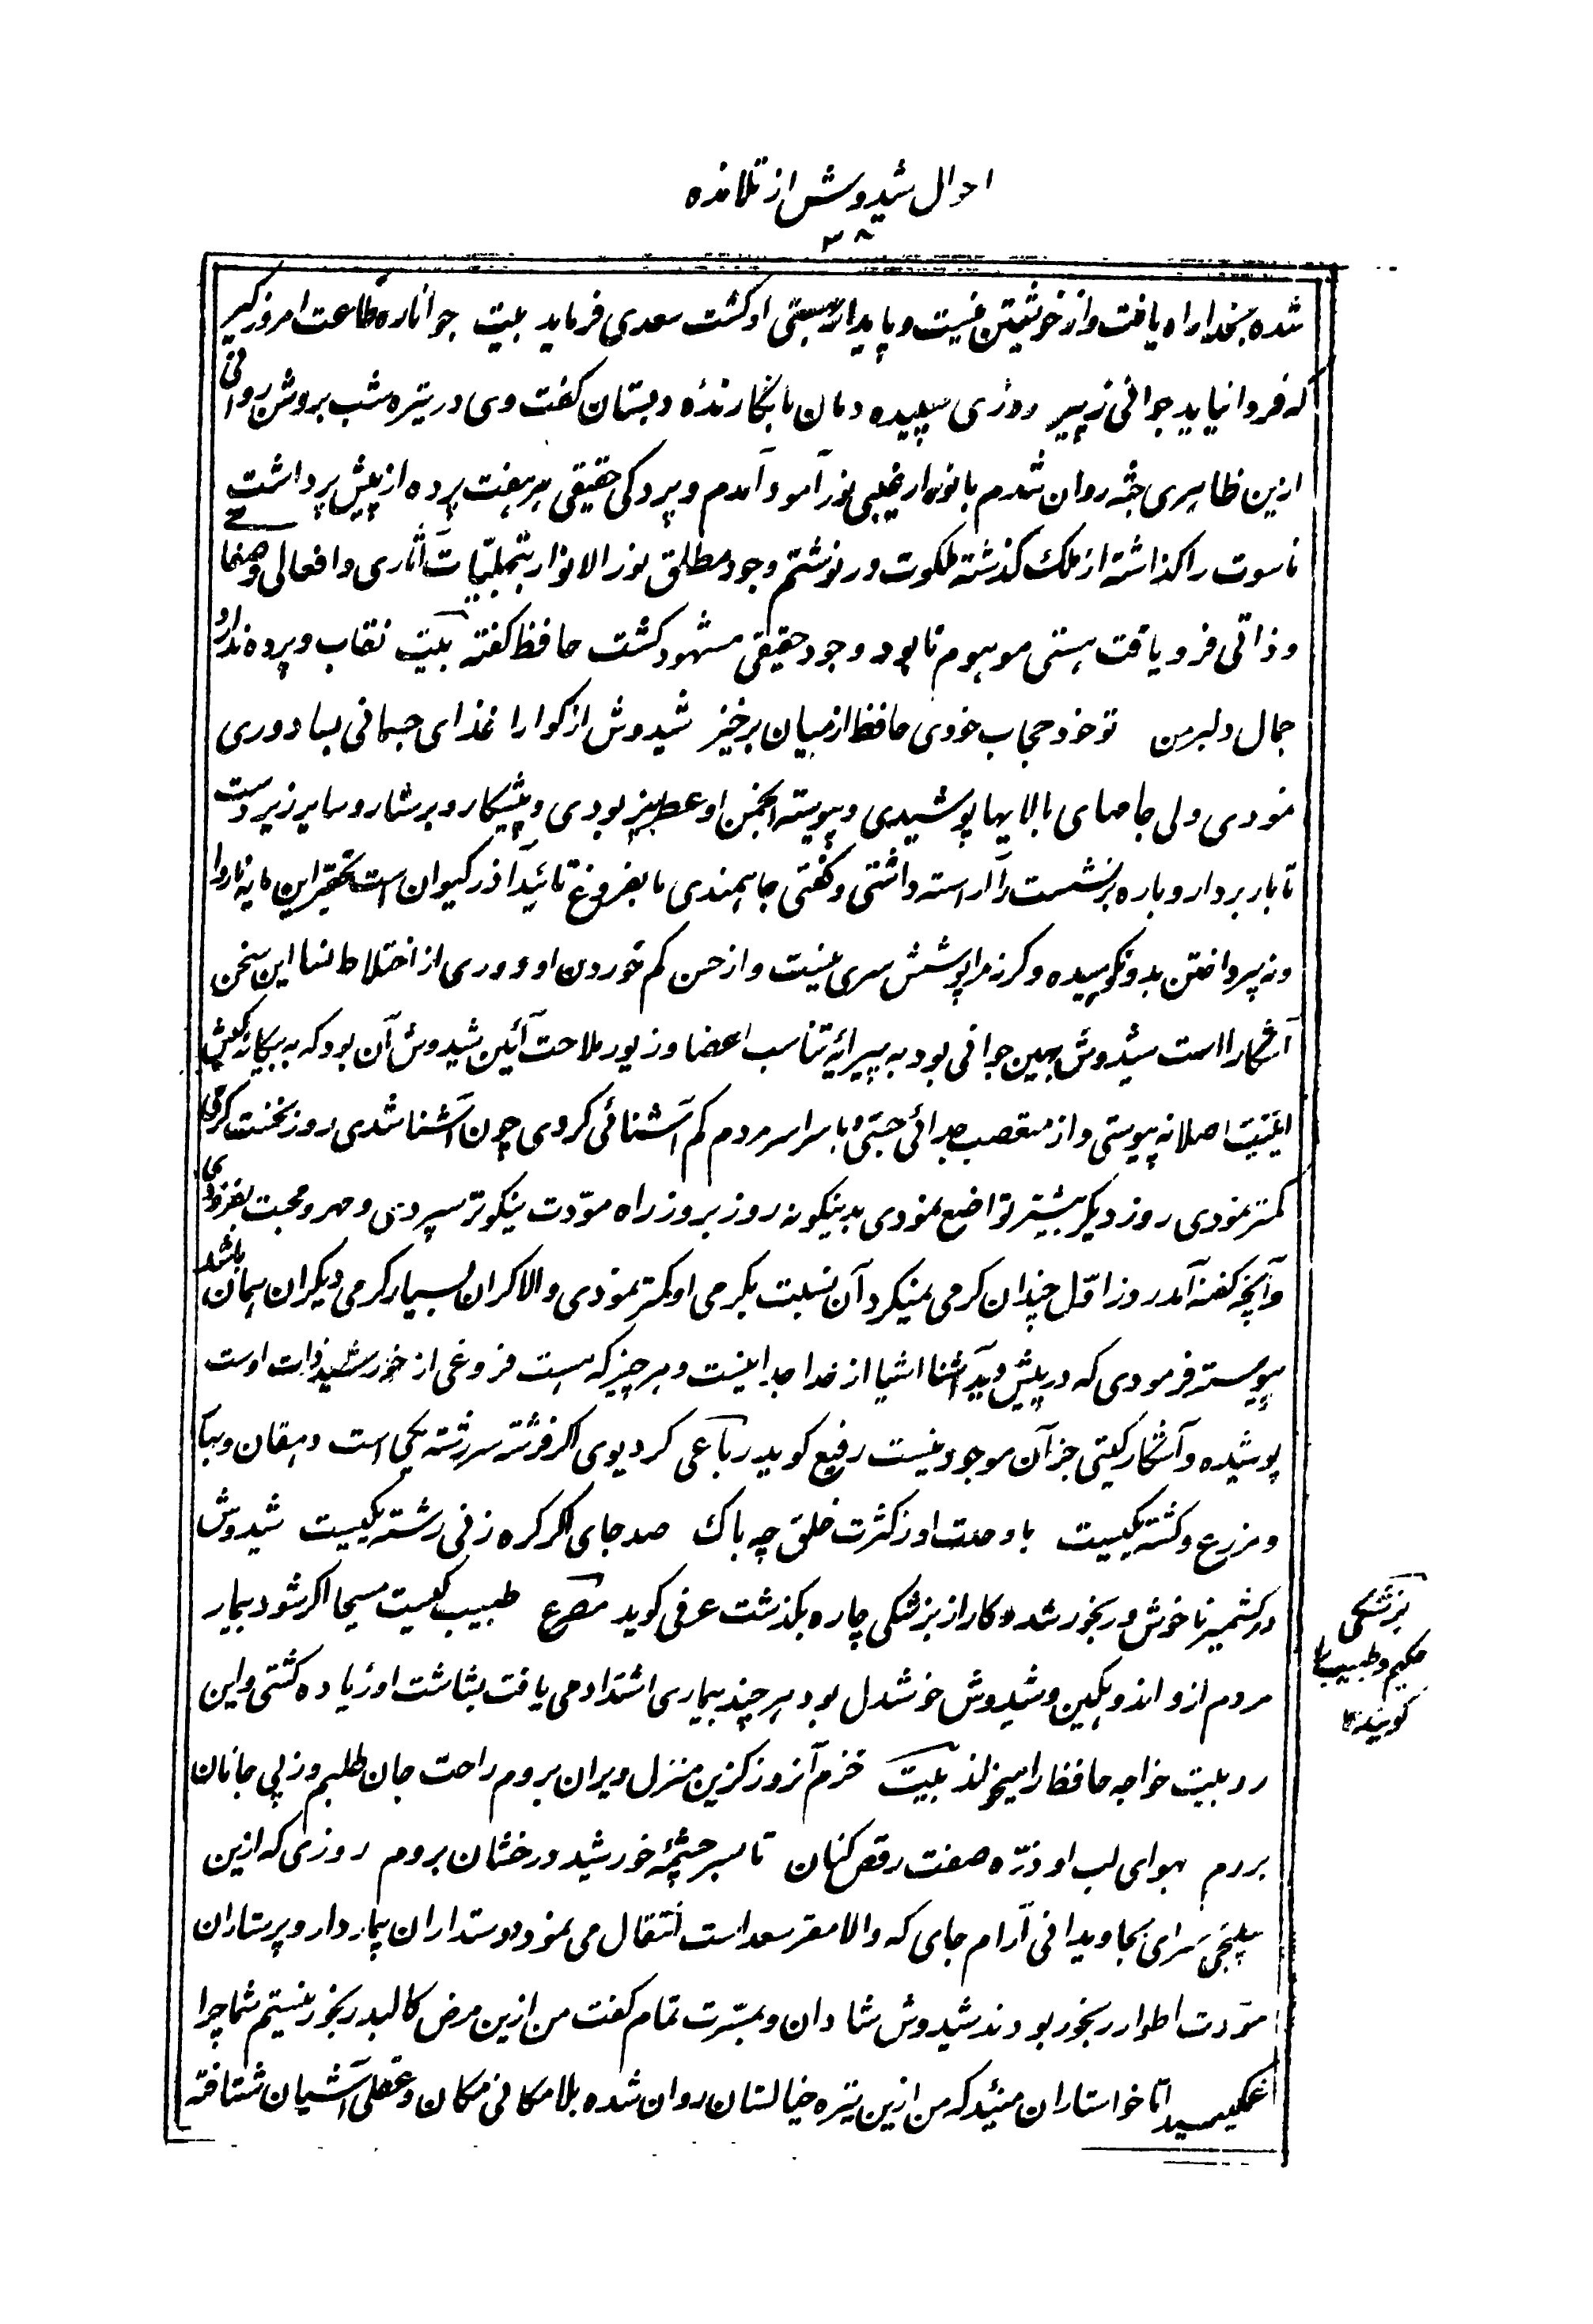 احوال شیدوش از تلامذه
۳۸
شده بخدا راه یافت و از خویشتن نیست و پایدار بهستی او کشت سعدی فرماید بیت جوانا ره طاعت امروز گیر
که فردا نیاید جوانی ز پیر روزی سپیده دمان با نگارنده دبستان گفت وی در تیره شب بروشن روانی
ازین ظاهری جثه روان شدم بانوار غیبی نور آمود آمدم و پردگی حقیقی هر هفت پرده از پیش برداشت
ناسوت را گذاشته از ملک گذشته ملکوت در نوشتم وجود مطلق نور الانوار بتجلیات آثاری و افعالی و صفاتی
و ذاتی فرو یافت هستی موهوم نابود وجود حقیقی مشهود کشت حافظ گفته بیت نقاب و پرده ندارد
جمال دلبر من تو خود حجاب خودی حافظ از میان برخیز شیدوش از گوارا غذای جسمانی بسا دوری
نمودی ولی جامهای بالابها پوشیدی و پیوسته انجمن او عطربیز بودی و پیشکار و پرستار و سایر زیردست
تا باربردار و باره بر نشست را آراسته داشتی و گفتی جاهمندی ما بفروغ تائید آذر کیوان است تحقیر این مایه ناروا
و نه پرداختن بدو نکوهیده و گرنه مرا بپوشش سری نیست و از حسن کم خوردن او و دوری از اختلاط نسا این سخن
آشکارا است شیدوش بهین جوانی بود به پیرایه تناسب اعضا و زیور ملاحت آئین شیدوش آن بود که به بیگانه کیش
اصلا نه پیوستی و از متعصب جدائی جستی و با سراسر مردم کم آشنائی کردی چون آشنا شدی روز نخست گرمی
کمتر نمودی روز دیگر بیشتر تواضع نمودی بدینگونه روز بروز راه مودت نیکوتر سپردی و مهر و محبت بفزودی
و آنچه گفته آمد روز اول چندان گرمی نمیکرد آن نسبت بگرمی او کمتر نمودی و الا گران بسیار گرمی دیگران همان باشد
پیوسته فرمودی که در پیش دید آشنا اشیا از خدا جدا نیست و هر چیز که هست فروغی از خورشید ذات اوست
پوشیده و آشکار گیتی جز آن موجود نیست رفیع گوید رباعی گر دیوی اگر فرشته سر رشته یکی است دهقان و بهار
و مزرع و کشته یکیست با وحدت او ز کثرت خلق چه باک صد جای اگر گره زنی رشته یکیست شیدوش
در کشمیر ناخوش و رنجور شد و کار از بزشکی چاره بگذشت عرفی گوید مصرع طبیب کیست مسیحا اگر شود بیمار
مردم ازو اندوهگین و شیدوش خوشدل بود هر چند بیماری اشتداد می یافت بشاشت او زیاده گشتی و این
دو بیت خواجه حافظ را میخواند بیت خرم آنروز کزین منزل ویران بروم راحت جان طلبم وز پی جانان
بروم بهوای لب او ذره صفت رقص کنان تا سر چشمه خورشید درخشان بروم روزی که ازین
سپنجی سرای بجاویدانی آرام جای که والا مقر سعداست انتقال می نمود دوستداران بیماردار و پرستاران
مودت اطوار رنجور بودند شیدوش شادان و بمسرت تمام گفت من ازین مرض کالبد رنجور نیستم شما چرا
غمگینید اما خواستاران منید که من ازین تیره خیالستان روان شده بلامکانی مکان و عقلی آشیان شتافته
بزشکی
حکیم و طبیب را
گویند ۱۲